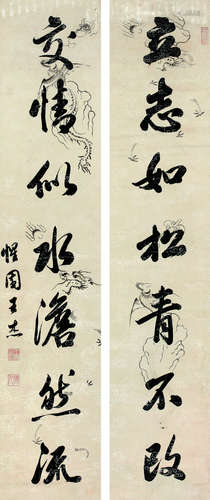 立志如松青不改
交情似水澹然流
惺园王杰